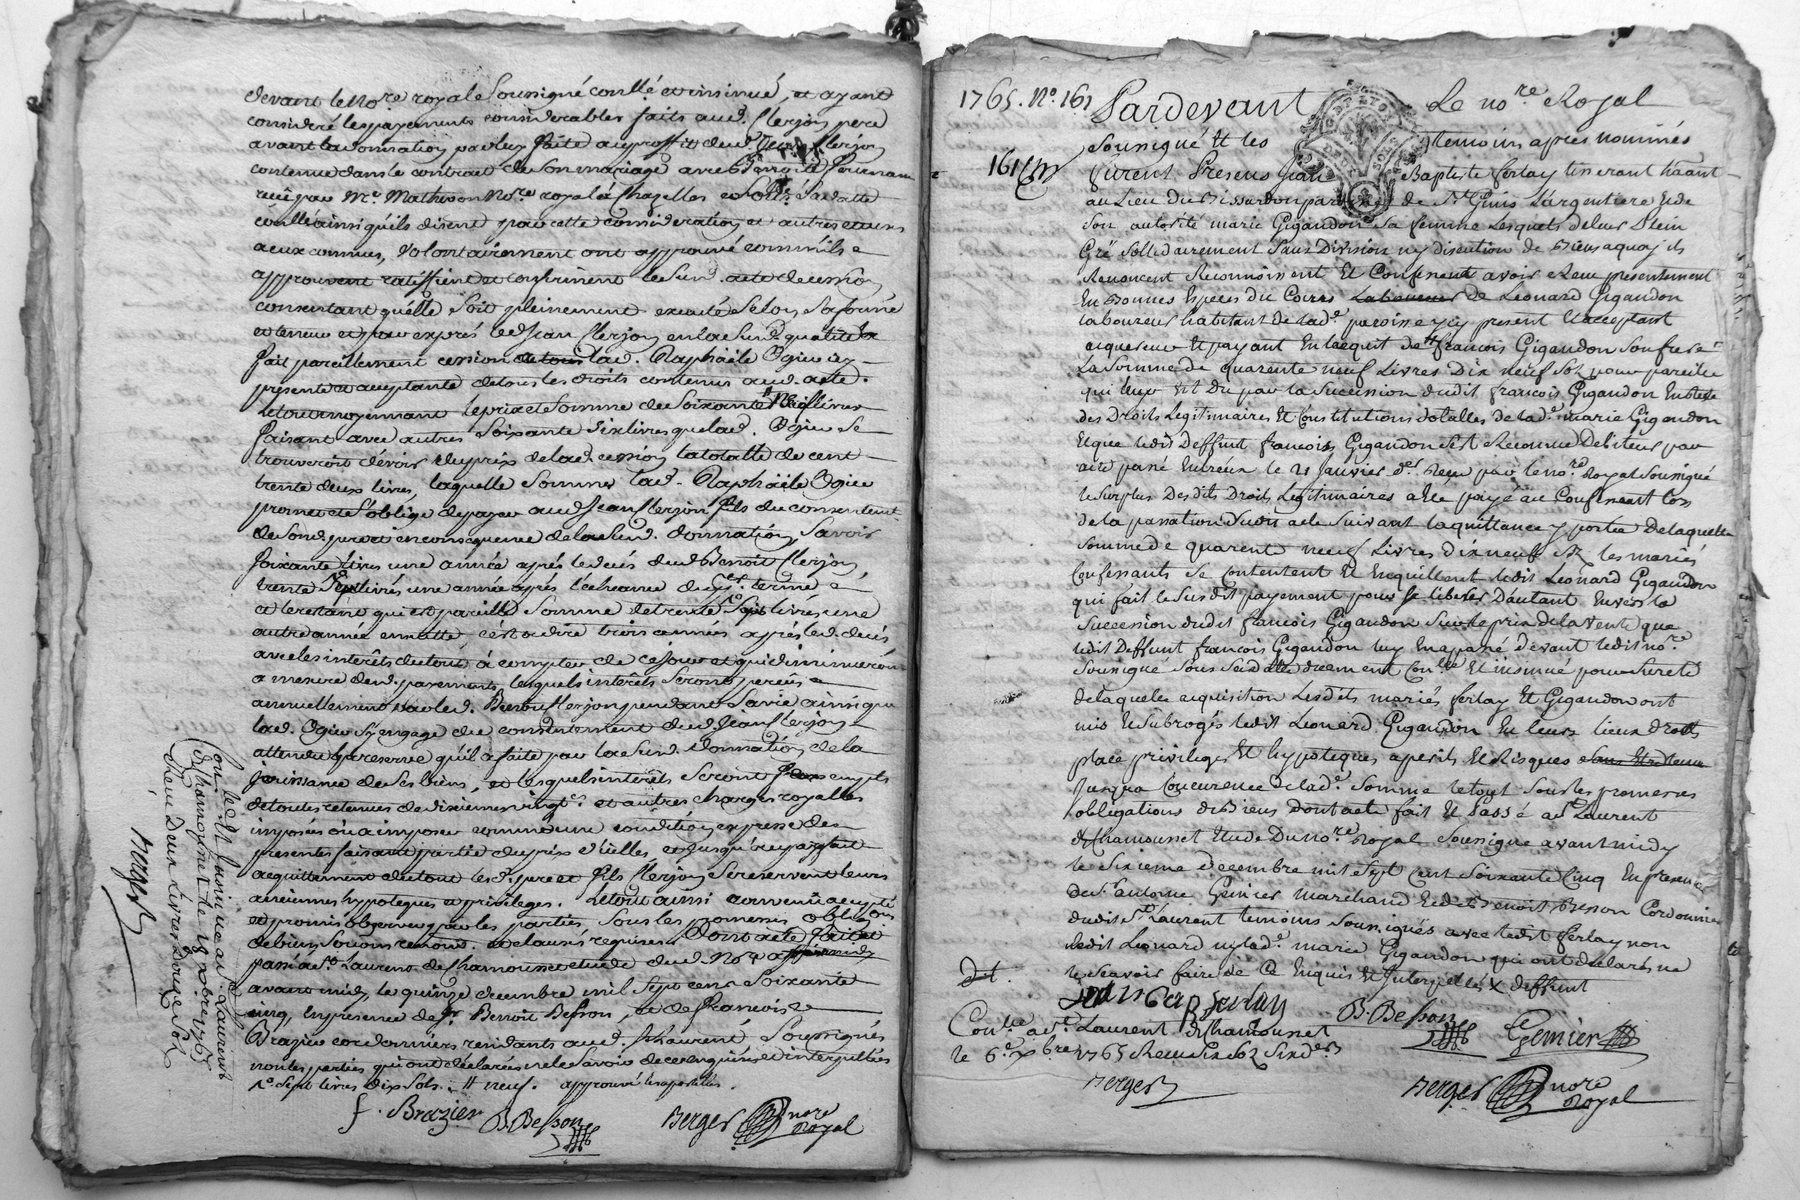 devant le No.re royal Soussigné conllé et insinué, et ayant
consideré les payements considerables faits aud. Clerjon pere
avant la donnation par luy faite au proffit dud. Jean Clerjon
contenue dans le contrat de son mariage avec Benoite
reçû par Me. Mathevon No.re royal à Chazelles
conllé ainsi qu'ils disent pour cette consideration et autres
a eux connues, volontairement ont approuvé comm'ils
approuvent ratiffient et confirment le susd. acte de cession
consentant qu'elle soit pleinement executé selon sa forme
et teneur et par exprés led. Jean Clerjon en la susd. qualité
fait pareillement cession a lad. Raphaële Ogier icy
presente et acceptante de tous les droits contenus aud. acte.
Le tout moyennant le prix et Somme de Soixante Neuf livres
faisant avec autres Soixante livres que lad. Ogier se
trouveroit devoir du prix de lad. cession la totallité de cent
trente deux livres, laquelle Somme lad. Raphaële Ogier
promet et s'oblige de payer aud. Jean Clerjon fils du consentement
de sond. pere et en consequence de la susd. donnation, Savoir
Soixante livres une année aprés le decés dud. Benoit Clerjon,
trente Sept livres une année aprés l'echeance du terme
et le restant qui est pareille Somme de trente Sept livres une
autre année ensuitte, c'est a dire trois années aprés led. decés
avec les intérêts du tout à compter de ce jour et qui diminueront
a mesure desd. payements, lesquels intérêts Seront perçus
annuellement par led. Benoit Clerjon pendant Sa vie ainsi que
lad. Ogier s'y engage du consentement dud. Jean Clerjon
attendu la reserve qu'il a faite par la susd. donnation de la
jouissance de Ses biens, et lesquels intérêts Seront exempts
de toutes retenues de dixiemes vingt.es et autres charges royalles
imposées ou a imposer comme une condition expresse des
presentes faisant partie du prix d'icelles et jusqu'au parfait
acquittement du tout lesd. pere et fils Clerjon Se reservent leurs
anciennes hypoteques et privileges. Le tout ainsi convenu accepté
et promis observer par les parties, Sous les promesses obli.ons
de biens Soumis renons. et clauses requises. Dont acte fait et
passé a St. Laurent de Chamousset etude dud. No.re
avant midy, le quinze decembre mil Sept cent Soixante
cinq, En presence de Sr. Benoit Besson, et de françois
Brazier cordonniers residants aud. St. Laurent Soussignés
non les parties qui ont déclarées ne le Savoir de ce enquises et interpellées
Sept livres dix sols. neuf. approuvé les apostilles.
f. Brazier B. Besson Berger nore Royal
Con.llé et Insinué a St. Laurent
de Chamousset le xbre 1765
Reçu Deux Livres Douze Sol
Berger
1765. N.o 161
Pardevant Le no.re Royal
Sousigné Et les temoin aprés nommés
161
furent Presens Jean Baptiste ferlay tisserant habitant
au Lieu du Bissardon paroisse de St. Genis L'argentiere Et de
Son autorité marie Gigandon Sa femme Lesquels de leur Plein
Gré Sollidairement Sans Division ny discution de Biens a quoy ils
Renoncent Reconnoissent Et Confessent avoir Reçu presentement
En Bonnes Especes du Cours de Leonard Gigandon
laboureur habitant de lad.e paroisse icy present Et acceptant
aquereur Et payant En lacquit de françois Gigandon Son frere
La Somme de quarente neuf Livres Dix neuf Sol pour pareille
qui leur Est Du par la Sucession dudit francois Gigandon En teste
des Droits Legitimaires Et Constitutions dotalles de lad.e marie Gigandon
Et que ledit deffunt francois Gigandon S'est Reconnu Debiteur par
acte passé Entreux le 21 Janvier d.er Reçu par le no.re Royal Sousigné
le Surplus Desdits Droits Legitimaires a Eté payé au Confessant lors
de la passation dudit acte Suivant la quittance y portée De laquelle
Somme de quarent neuf Livres dix neuf Sol les mariés
Confessants se Contentent Et En quittent ledit Leonard Gigandon
qui fait le Susdit payement pour se liberer Dautant Envers la
Succession dudit francois Gigandon Sur le prix de la vente que
ledit Deffunt francois Gigandon luy En a passé devant ledit no.re
Sousigné Sous Seid Con.llé Et insinué pour Sureté
de laquelle acquisition Lesdits mariés ferlay Et Gigandon ont
mis Et Subrogés ledit Leonard Gigandon En leurs lieux droits
place privileges Et hypoteques a perils Et Risques
Jusqua Concurence de lad.e Somme le tout Sous les promesses
obligations de Biens Dont acte fait Et Passé a St. Laurent
de Chamousset Etude Du no.re Royal Sousigné avant midy
le Sixieme decembre mil Sept Cent Soixante Cinq En presence
de Sr. antoine Geinier marchand Et de Sr. Benoit Besson Cordonnier
dudit St. Laurent temoins Sousignés avec ledit ferlay non
ledit Leonard ny lad.e marie Gigandon qui ont declarés ne
le Scavoir faire de Ce Enquis Et Interpellés X deffunt
Jean Bap ferlay B. Besson Geinier
Con.llé a St. Laurent de Chamousset
le 6.e xbre 1765 Reçu Six Sol Six d.ers
Berger
Berger nore Royal